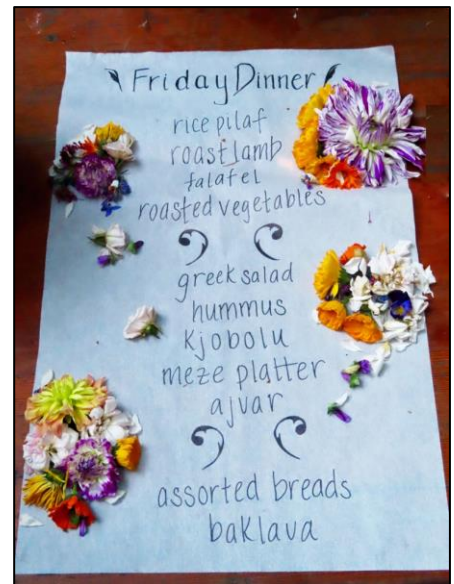 Friday Dinner
rice pilaf
roast lamb
falafel
roasted vegetables
greek salad
hummus
kjobolu
meze platter
ajvar
assorted breads
baklava